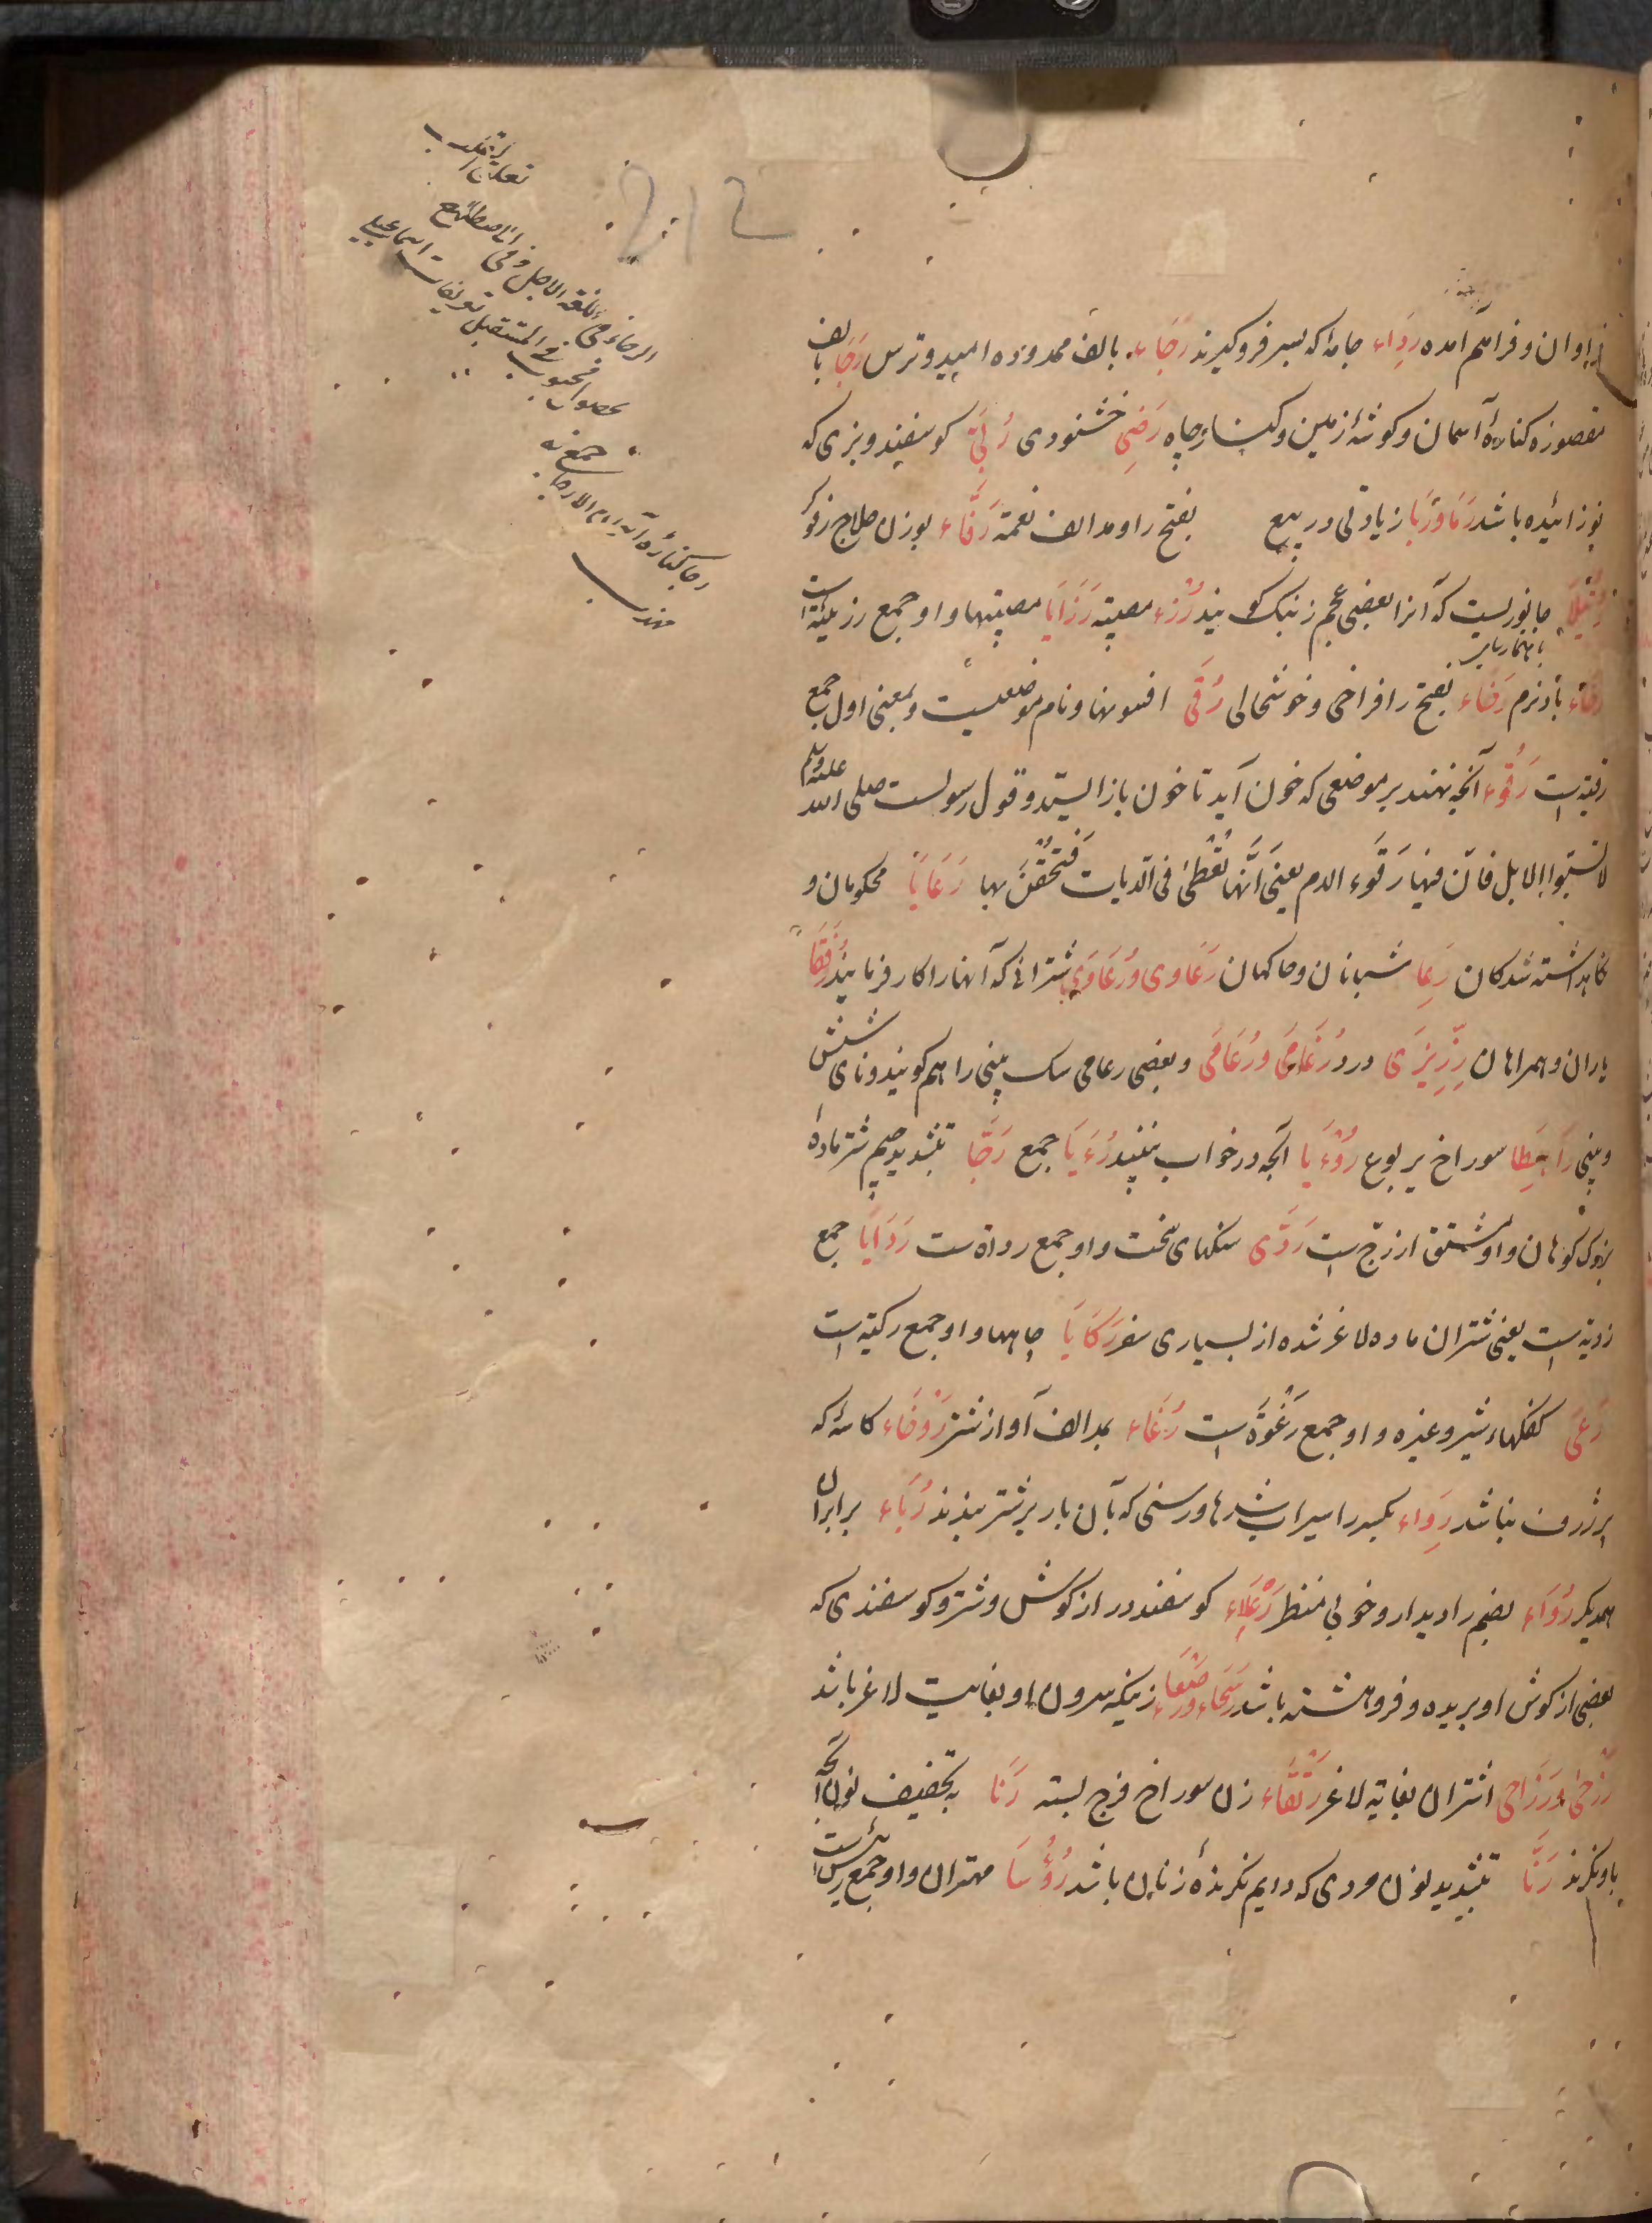 فراوان و فراهم آمده رِداء جامهٔ که بسر فروگیرند رَجَاء بالف ممدوده امید و ترس رَجَا بالف
مقصوره کنارهٔ آسمان و گوشهٔ زمین و کنار چاه رَضِی خشنودی رُبَّی گوسفند و بزی که
نوزائیده باشد رَمَا و رَبَا زیادتی در بیع بفتح را و مد الف نعمة رَفَّاء بوزن حلاج رفوگر
رُتَیلَا جانوریست که آنرا بعضی عجم زنبک گویند رُزْء مصیبة رَزَایَا مصیبتها و او جمع رزیئة است
رخاء باد نرم رَخَاء بفتح را فراخی و خوشحالی رُقَی افسونها و نام موضعیست و بمعنی اول جمع
رقیه است رَقُوء آنچه نهند بر موضعی که خون آید تا خون باز ایستد و قول رسولست صلی الله علیه وسلم
لا تسبّوا الابل فانّ فیها رَقوء الدم یعنی انّها تُعْطیٰ فی الدیات فتُحْقَنُ بها رَعَایَا محکومان و
نگاهداشته شدگان رِعا شبانان و حاکمان رَعَاوی و رُعَاوَی شترانی که آنها را کار فرمایند رُفَقَا
یاران و همراهان رِزِّیزَی درد رُغَامَی و رُعَامَی و بعضی رعامی سک بینی را هم گویند و نای شش
و بینی رَاهِطا سوراخ یربوع رُؤْیَا آنچه در خواب بینند رُءَیَا جمع رَجَّا بتشدید جیم شتر مادهٔ
بزرگ کوهان و او مشتق از رجّ است رَدَّی سنگهای سخت و او جمع رداة ست رَدَایَا جمع
ردیه است یعنی شتران ماده لاغر شده از بسیاری سفر رَکَایَا چاهها و او جمع رکیّه است
رَغَی کفکهاء شیر و غیره و او جمع رَغْوَة است رُغَاء بمد الف آواز شتر رَوْحَاء کاسهٔ که
پر ژرف نباشد رِواء بکسر را سیراب شدها و رسنی که بآن بار بر شتر بندند رُبَاء برابران
همدیگر رُوَاء بضم را دیدار و خوبی منظر رَعْلَاء گوسفند دراز گوش و شتر و گوسفندی که
بعضی از گوش او بریده و فروهشته باشد رَسْحَاء و رَصْعَاء زنیکه سرون او بغایت لاغر باشد
رَزْحَی و رَزَاحَی اشتران بغایة لاغر رَتْقَاء زن سوراخ فرج بسته رَنَا بتخفیف نون آنچه
باو نگرند رَنَّا بتشدید نون مردی که دایم نگرندهٔ زنان باشد رُؤَسَا مهتران و او جمع رئیس است
با همکاربای
212
تعلق القلب
الرجاء فی اللغة الامل و فی الاصطلاح
بحصول محبوب فی المستقبل تعریفات اسماعیلی
رجا کنارهٔ آید الارجا جمع نه
مهذب